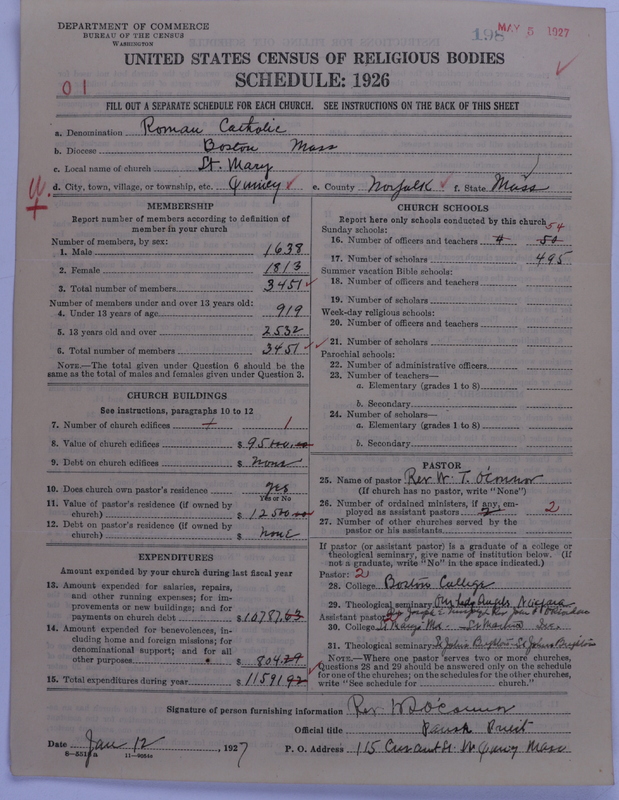 DEPARTMENT OF COMMERCE
BUREAU OF THE CENSUS
WASHINGTON
198 MAY 5 1927
UNITED STATES CENSUS OF RELIGIOUS BODIES
SCHEDULE: 1926
01
FILL OUT A SEPARATE SCHEDULE FOR EACH CHURCH. SEE INSTRUCTIONS ON THE BACK OF THIS SHEET
a. Denomination Roman Catholic
b. Diocese Boston Mass
c. Local name of church St. Mary
d. City, town, village, or township, etc. Quincy e. County Norfolk f. State Mass
MEMBERSHIP
Report number of members according to definition of
member in your church
Number of members, by sex:
1. Male 1638
2. Female 1813
3. Total number of members 3451
Number of members under and over 13 years old:
4. Under 13 years of age 919
5. 13 years old and over 2532
6. Total number of members 3451
NOTE.—The total given under Question 6 should be
same as the total of males and females given under Question 3.
CHURCH BUILDINGS
See instructions, paragraphs 10 to 12
7. Number of church edifices 1
8. Value of church edifices $ 95000.00
9. Debt on church edifices $ None
10. Does church own pastor's residence yes
Yes or No
11. Value of pastor's residence (if owned by
church) $ 12500.00
12. Debt on pastor's residence (if owned by
church) $ None
EXPENDITURES
Amount expended by your church during last fiscal year
13. Amount expended for salaries, repairs,
and other running expenses; for im-
provements or new buildings; and for
payments on church debt $ 10787.63
14. Amount expended for benevolences, in-
cluding home and foreign missions; for
denominational support; and for all
other purposes $ 804.29
15. Total expenditures during year $ 11591.92
CHURCH SCHOOLS
Report here only schools conducted by this church
Sunday schools: 54
16. Number of officers and teachers 4 50
17. Number of scholars 495
Summer vacation Bible schools:
18. Number of officers and teachers
19. Number of scholars
Week-day religious schools:
20. Number of officers and teachers
21. Number of scholars
Parochial schools:
22. Number of administrative officers
23. Number of teachers—
a. Elementary (grades 1 to 8)
b. Secondary
24. Number of scholars—
a. Elementary (grades 1 to 8)
b. Secondary
PASTOR
25. Name of pastor Rev. W. T. O'Connor
(If church has no pastor, write "None")
26. Number of ordained ministers, if any, em-
ployed as assistant pastors 2 2
27. Number of other churches served by the
pastor or his assistants
If pastor (or assistant pastor) is a graduate of a college or
theological seminary, give name of institution below. (If
not a graduate, write "No" in the space indicated.)
Pastor: 2
28. College Boston College
29. Theological seminary Our Lady Angels Niagara
Assistant pastor:
30. College St Marys Md.
31. Theological seminary St Johns Brighton St Johns Brighton
NOTE.—Where one pastor serves two or more churches,
Questions 28 and 29 should be answered only on the schedule
for one of the churches; on the schedules for the other churches,
write "See schedule for church."
Signature of person furnishing information Rev. W T O'Connor
Official title Parish Priest
Date Jan 12, 1927 P. O. Address 115 Crescent St. W Quincy Mass